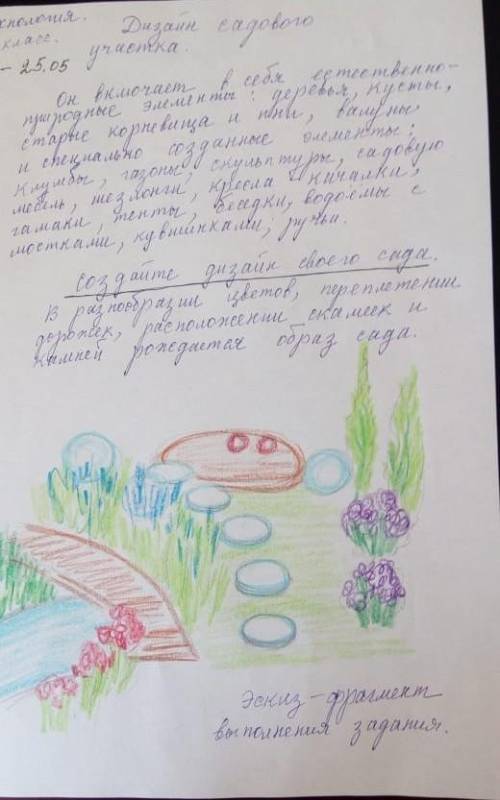 хнология. Дизайн садового
класс. участка.
– 25.05
Он включает в себя естественно-
природные элементы: деревья, кусты,
старые корневища и пни, валуны
и специально созданные элементы;
клумбы, газоны, скульптуры, садовую
мебель, шезлонги, кресла-качалки,
гамаки, тенты, беседки, водоёмы с
мостками, кувшинками, ручьи.
Создайте дизайн своего сада.
В разнообразии цветов, переплетении
дорожек, расположении скамеек и
камней рождается образ сада.
Эскиз – фрагмент
выполнения задания.